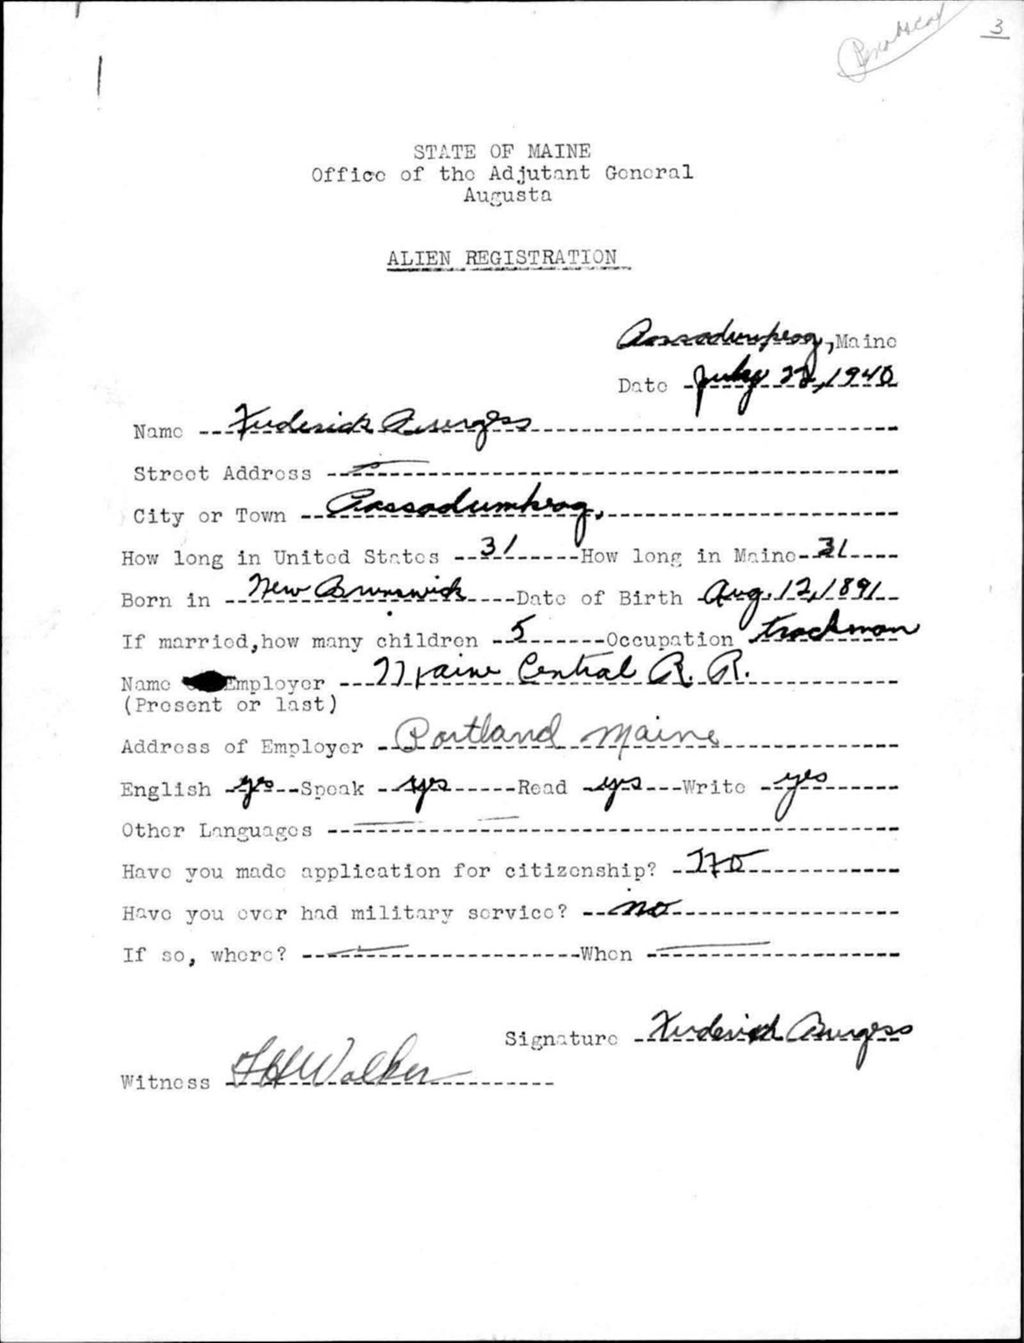 Penobscot 3
STATE OF MAINE
Office of the Adjutant General
Augusta
ALIEN REGISTRATION
Passadumkeag, Maine
Date July 22, 1940
Name Frederick Burgess
Street Address
City or Town Passadumkeag,
How long in United States 31 How long in Maine 31
Born in New Brunswick Date of Birth Aug. 12, 1891
If married, how many children 5 Occupation trackman
Name Employer Maine Central R. R.
(Present or last)
Address of Employer Portland Maine
English yes Speak yes Read yes Write yes
Other Languages
Have you made application for citizenship? No
Have you ever had military service? no
If so, where? When
Signature Frederick Burgess
Witness Walker